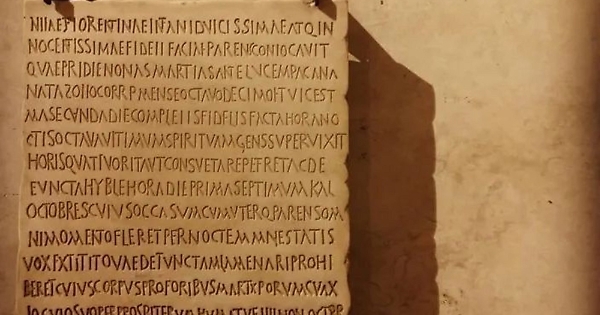 IVLIAE FLORENTINAE INFANTI DVLCISSIMAE ATQ IN
NOCENTISSIMAE FIDELI FACTAE PARENS CONLOCAVIT
QVAE PRIDIE NONAS MARTIAS ANTE LVCEM PAGANA
NATA ZOILO CORR P MENSE OCTAVO DECIMO ET VICEST
MA SECVNDA DIE COMPLETIS FIDELIS FACTA HORA NO
CTIS OCTAVA VLTIMVM SPIRITVM AGENS SVPERVIXIT
HORIS QVATTVOR ITA VT CONSVETA REPETERET AC DE
FVNCTA HYBLE HORA DIE PRIMA SEPTIMVM KAL
OCTOBRES CVIVS OCCASVM CVM VTERQ PARENS OM
NI MOMENTO FLERET PER NOCTEM MAIESTATIS
VOX EXTITIT QVAE DEFVNCTAM LAMENTARI PROHI
BERET CVIVS CORPVS PRO FORIBVS MARTYRORVM
LOCVLO SVO PER PROSBITERVM HVMATVM IIII NON OCTBR